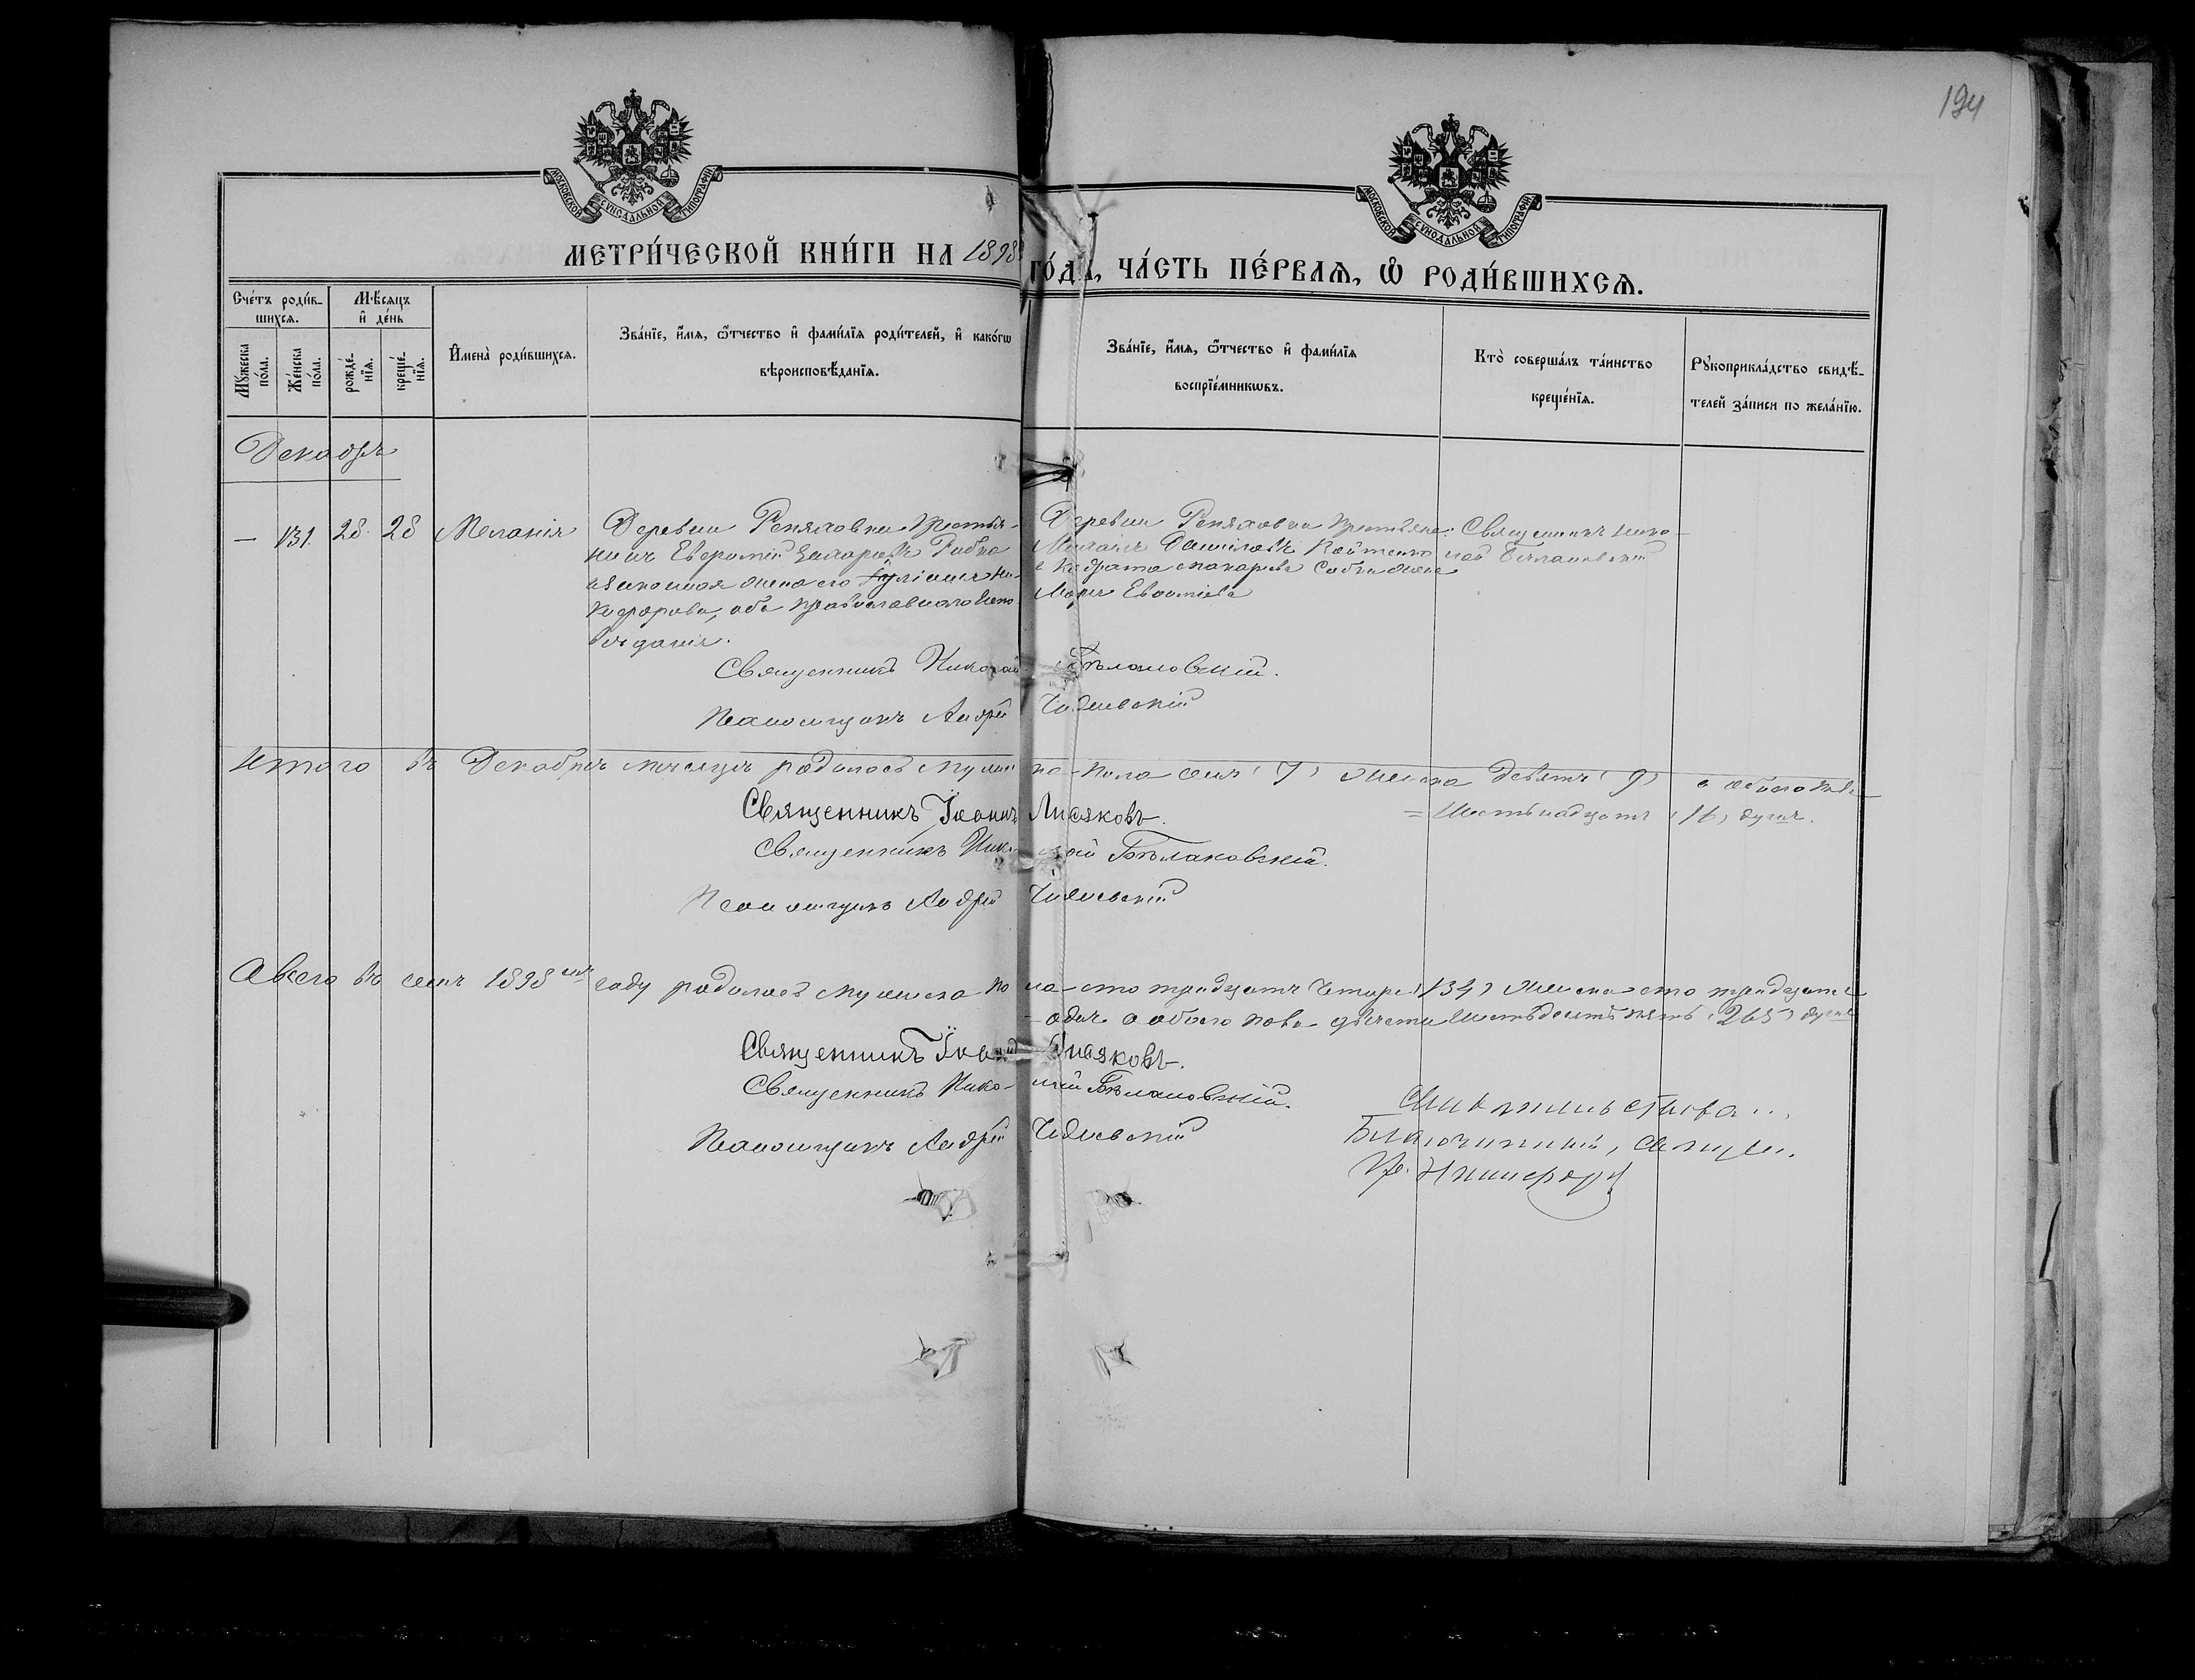 194
МОСКОВСКОЙ СУНОДАЛЬНОЙ ТИПОГРАФІИ
МОСКОВСКОЙ СУНОДАЛЬНОЙ ТИПОГРАФІИ
МЕТРИ́ЧЕСКОЙ КНИ́ГИ НА 1898 ГО́ДА, ЧА́СТЬ ПЕ́РВАѦ, Ѡ҆ РОДИ́ВШИХСѦ.
Сче́тъ роди́в-
шихсѧ.
Мѣ́сѧцъ
и҆ де́нь
Мꙋ́жеска
по́ла.
Же́нска
по́ла.
рожде́-
нїѧ.
креще́-
нїѧ.
И҆мена̀ роди́вшихсѧ.
Зва́нїе, и҆́мѧ, ѻ҆́тчество и҆ фами́лїѧ роди́телей, и҆ како́гѡ
вѣроисповѣ́данїѧ.
Зва́нїе, и҆́мѧ, ѻ҆́тчество и҆ фами́лїѧ
воспрїе́мникѡвъ.
Кто̀ соверша́лъ та́инство
креще́нїѧ.
Рꙋкоприкла́дство свидѣ́-
телей за́писи по жела́нїю.
Декабрь
— 131. 28 28 Меланія
Деревни Репяховки Крестья-
нинъ Евфимій Захаровъ Рибка
и законная жена его Іуліанія Ни-
кифорова, оба православнаго Испо-
вѣданія.
Деревни Репяховки крестьяне:
Михаилъ Даниловъ
и Макарова жена
Марія Евфиміева
Священникъ Нико-
лай Билановскій
Священникъ Николай Бѣлановскій.
Псаломщикъ Андрей
Итого въ Декабрѣ мѣсяцѣ родилось мужеска пола семь (7) женска девять (9) а обоего пола
= Шестнадцать (16) душъ.
Священникъ Іоаннъ Лисяковъ.
Священникъ Николай Бѣлановскій.
Псаломщикъ Андрей
А всего въ семъ 1898 году родилось мужеска пола сто тридцать четыре (134) женска сто тридцать
одна а обоего пола двѣсти шестьдесятъ пять (265) душъ
Священникъ Іоаннъ Лисяковъ.
Священникъ Николай Бѣлановскій.
Псаломщикъ Андрей
Благочинный, Священ.